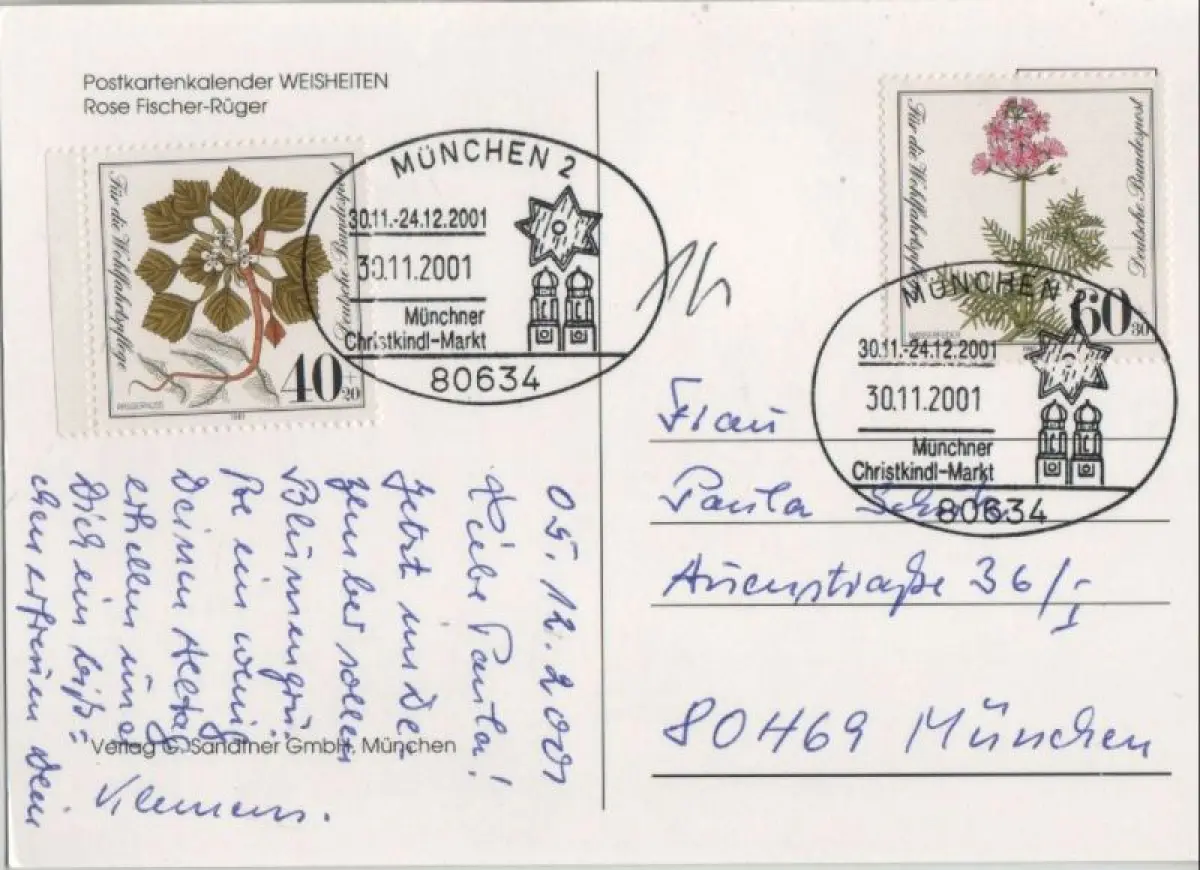 Postkartenkalender WEISHEITEN
Rose Fischer-Rüger
Für die Wohlfahrtspflege
Deutsche Bundespost
40
+20
WASSERNUSS
1981
MÜNCHEN 2
30.11.-24.12.2001
30.11.2001
Münchner
Christkindl-Markt
80634
05.12.2001
Liebe Paula!
Jetzt im De
zember sollen
Blumengrü
ße ein wenig
Deinen Alltag
erhellen und
Dich ein biß=
chen erfreuen Dein
Klemens.
Verlag G. Sandtner GmbH, München
Für die Wohlfahrtspflege
Deutsche Bundespost
60
+30
WASSERFEDER
MÜNCHEN
30.11.-24.12.2001
30.11.2001
Münchner
Christkindl-Markt
80634
Frau
Paula
Auenstraße 36/I
80469 München